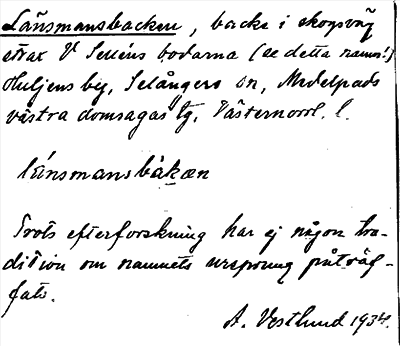 Länsmansbacken, backe i skogsväg
strax V Selléns bodarna (se detta namn!)
Huljens by, Selångers sn, Medelpads
västra domsagas tg, Västernorrl. l.
länsmansbàkæn
Trots efterforskning har ej någon tra-
dition om namnets ursprung påträf-
fats.
A. Vestlund 1934.